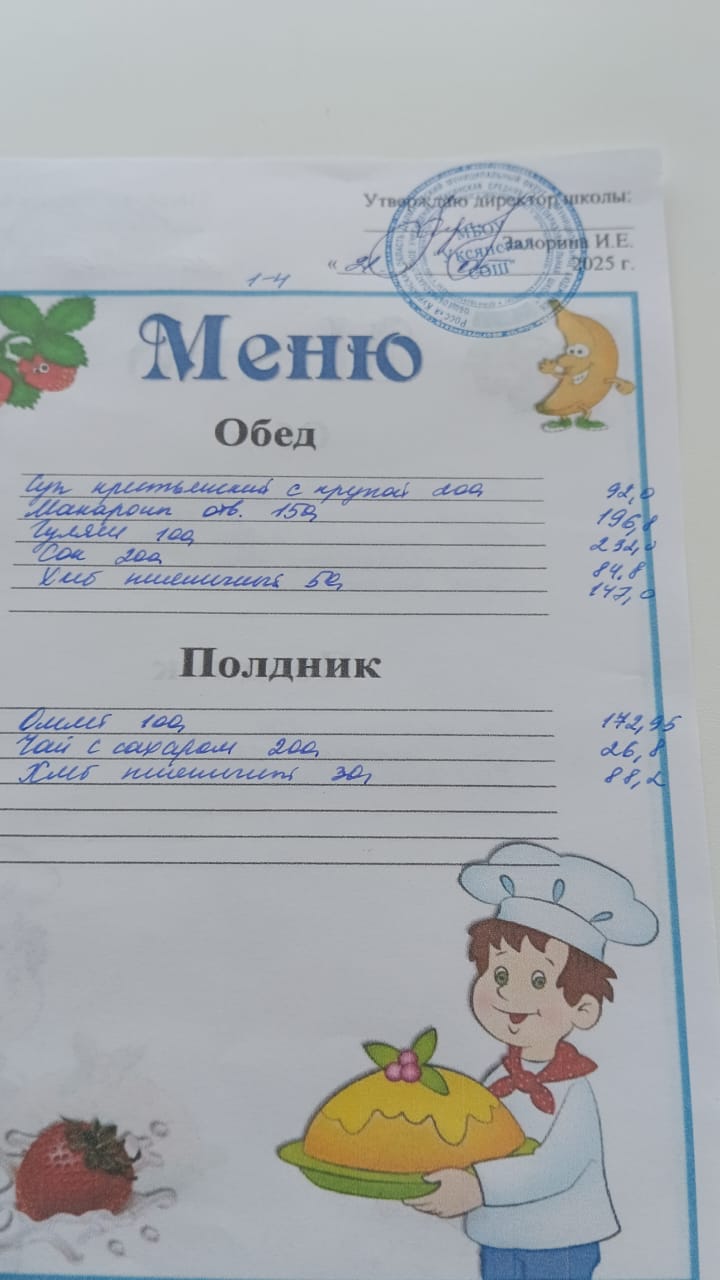 Утверждаю директор школы:
Залорина И.Е.
2025 г.
МБОУ
"Уксянская
СОШ"
1-4
Меню
Обед
Суп крестьянский с крупой 200 92,0
Макароны отв. 150 196,8
Гуляш 100 232,0
Сок 200 84,8
Хлеб пшеничный 50 147,0
Полдник
Омлет 100 172,95
Чай с сахаром 200 26,8
Хлеб пшеничный 30 88,2